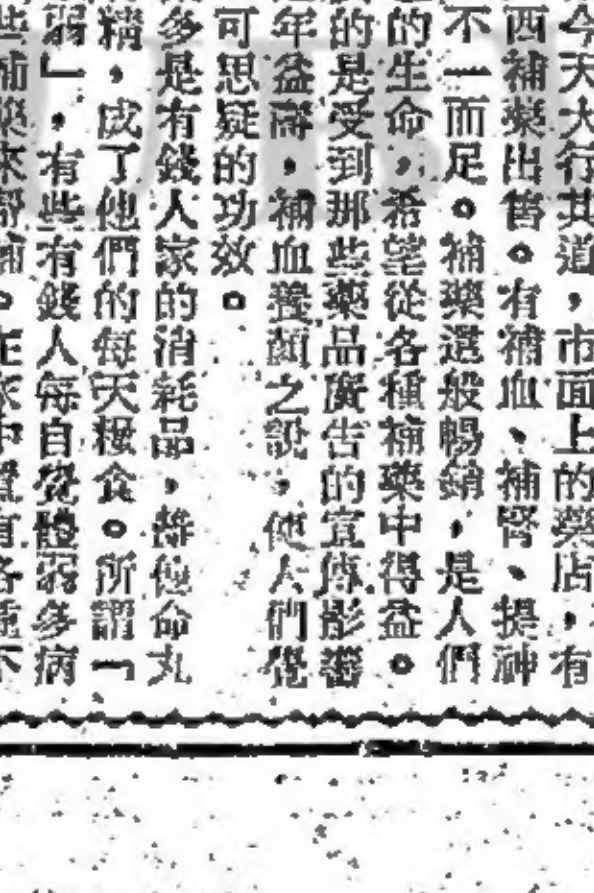 今天大行其道，市面上的藥店，有
西補藥出售。有補血、補腎、提神
不一而足。補藥這般暢銷，是人們
的生命，希望從各種補藥中得益。
的是受到那些藥品廣告的宣傳影響
年益壽，補血養顏之說，使人們覺
可思疑的功效。
多是有錢人家的消耗品，維他命丸
精，成了他們的每天糧食。所謂「
弱」，有些有錢人每自覺體弱多病
些補藥來幫補。在家中置有各種不